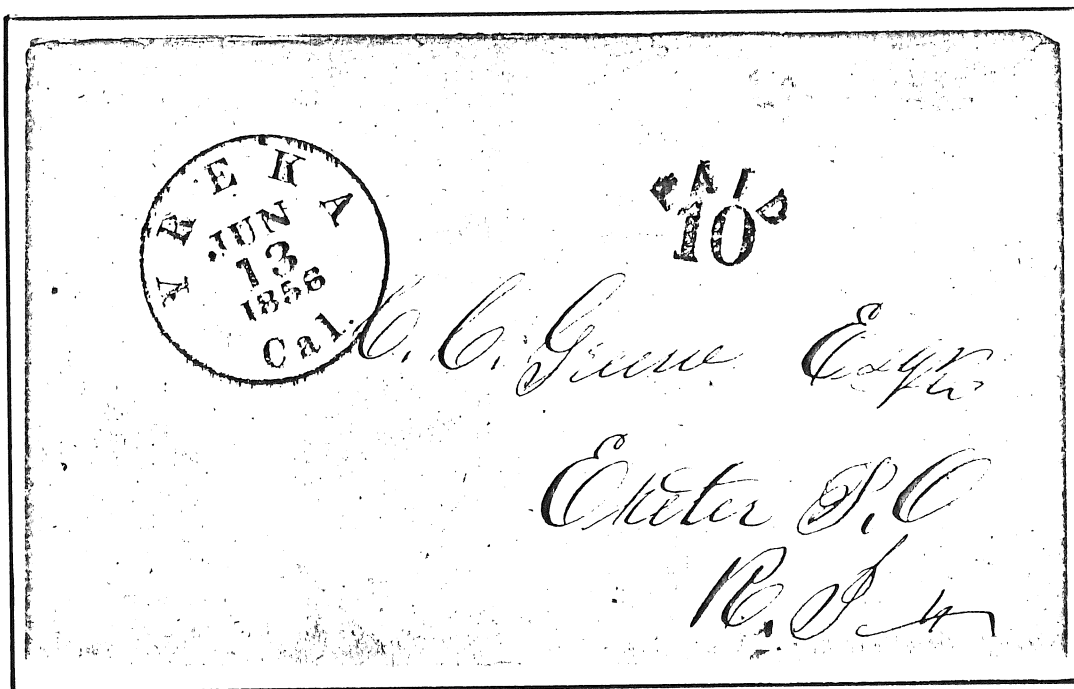 YREKA
JUN
13
1856
Cal.
PAID
10
C. C. Greene Esqr
Exeter P.O
R. I